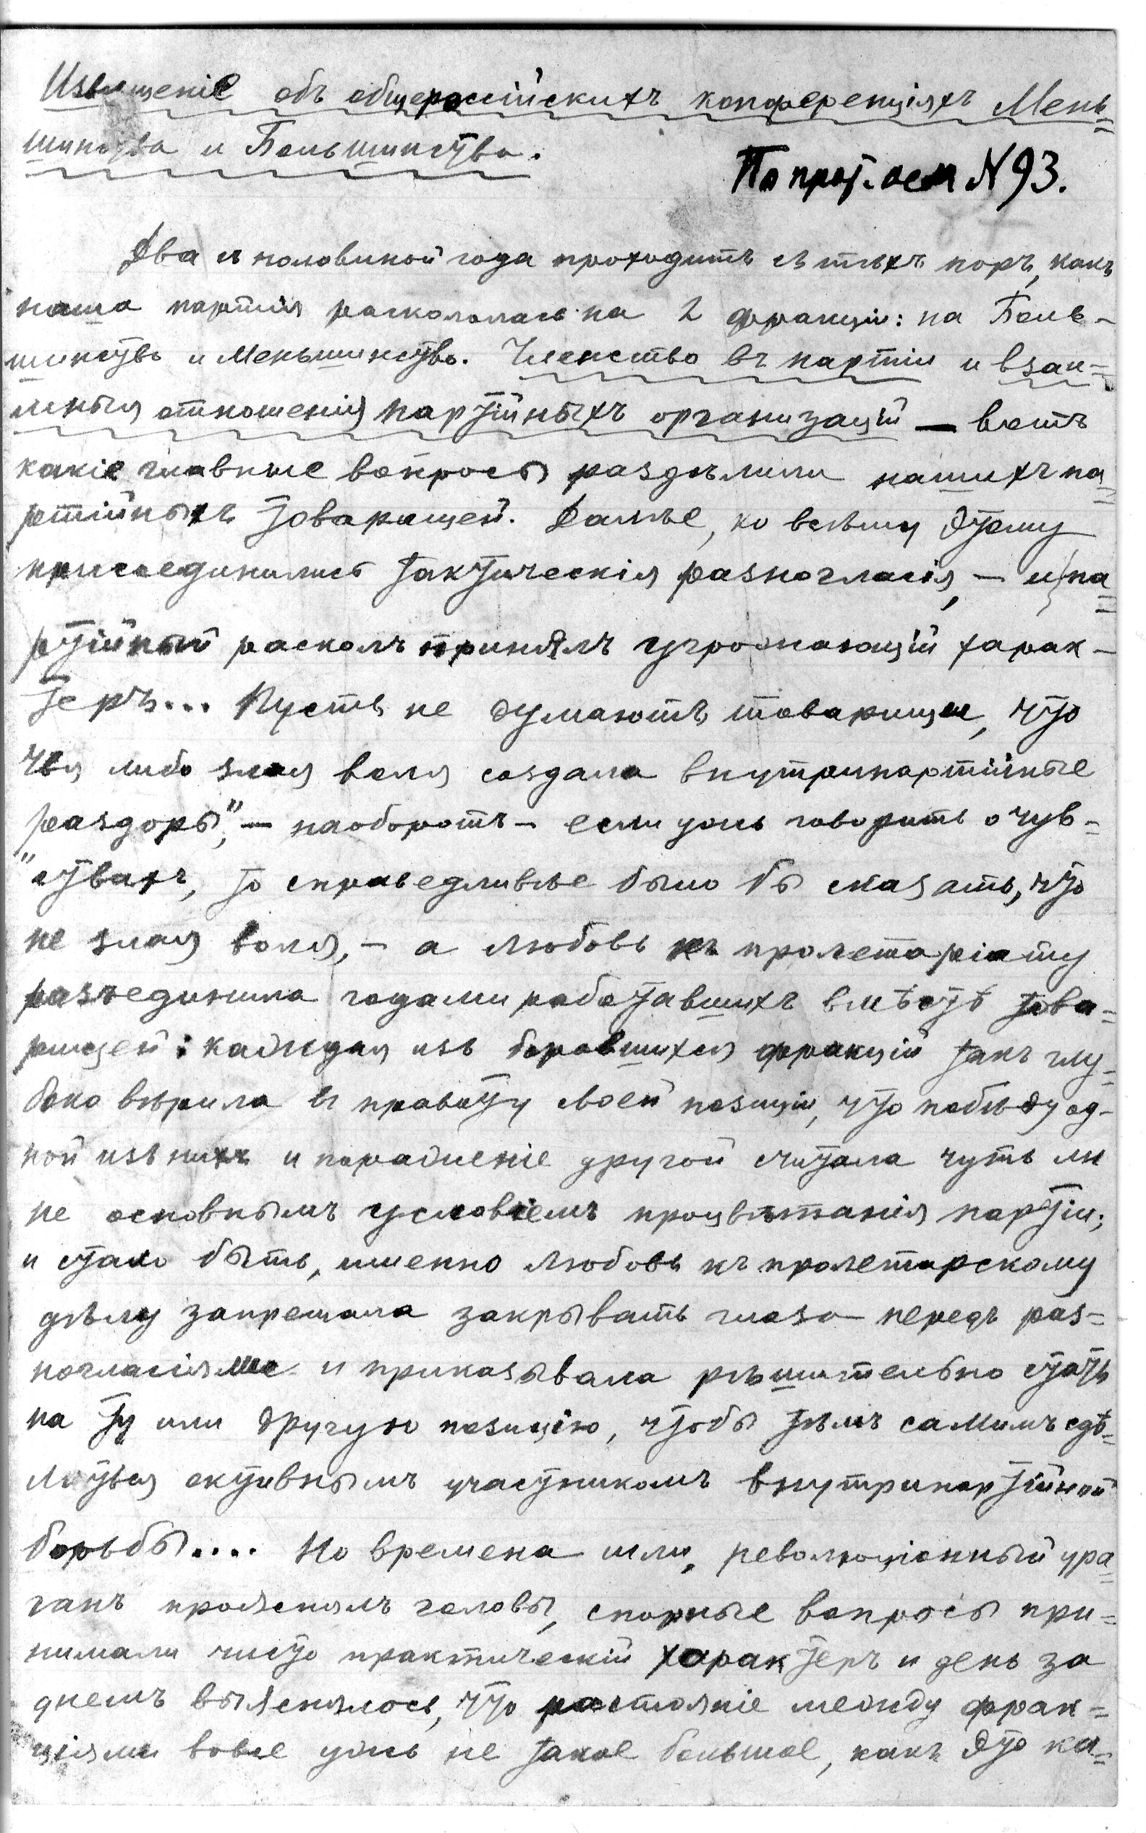 Извѣщеніе объ общероссійскихъ конференціяхъ Мень-
шинства и Большинства.
По прот. осм N 93.
Два съ половиной года проходитъ съ тѣхъ поръ, какъ
наша партія раскололась на 2 фракціи: на Боль-
шинство и Меньшинство. Членство въ партіи и взаи-
мныя отношенія партійныхъ организацій — вотъ
какіе главные вопросы раздѣлили нашихъ па-
ртійныхъ товарищей. Далѣе, ко всѣму этому
присоединились тактическія разногласія, — и па-
ртійный расколъ принялъ угрожающій харак-
теръ... Пусть не думаютъ товарищи, что
чья либо злая воля создала внутрипартійные
раздоры", — наоборотъ — если ужъ говорить о чув-
"ствахъ, то справедливѣе было бы сказать, что
не злая воля, — а любовь къ пролетаріату
разъединила годами работавшихъ вмѣстѣ това-
рищей: каждая изъ боровшихся фракцій такъ глу-
боко вѣрила въ правоту своей позиціи, что побѣду од-
ной изъ нихъ и пораженіе другой считала чуть ли
не основнымъ условіемъ процвѣтанія партіи;
и стало быть, именно любовь къ пролетарскому
дѣлу запрещала закрывать глаза передъ раз-
ногласіями и приказывала рѣшительно стать
на ту или другую позицію, чтобы тѣмъ самымъ сдѣ-
латься активнымъ участникомъ внутрипартійной
борьбы.... Но времена шли, революціонный ура-
ганъ прояснялъ головы, спорные вопросы при-
нимали чисто практическій характеръ и день за
днемъ выяснялось, что растояніе между фрак-
ціями вовсе ужъ не такое большое, какъ это ка-